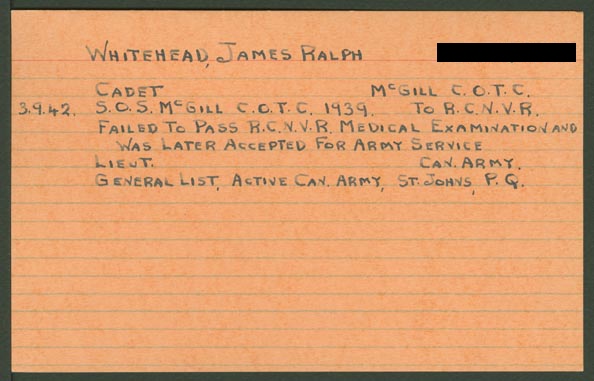 WHITEHEAD, JAMES RALPH
CADET McGILL C.O.T.C.
3.9.42. S.O.S. McGILL C.O.T.C. 1939. TO R.C.N.V.R.
FAILED TO PASS R.C.N.V.R. MEDICAL EXAMINATION AND
WAS LATER ACCEPTED FOR ARMY SERVICE
LIEUT. CAN. ARMY.
GENERAL LIST, ACTIVE CAN. ARMY, ST. JOHNS, P.Q.